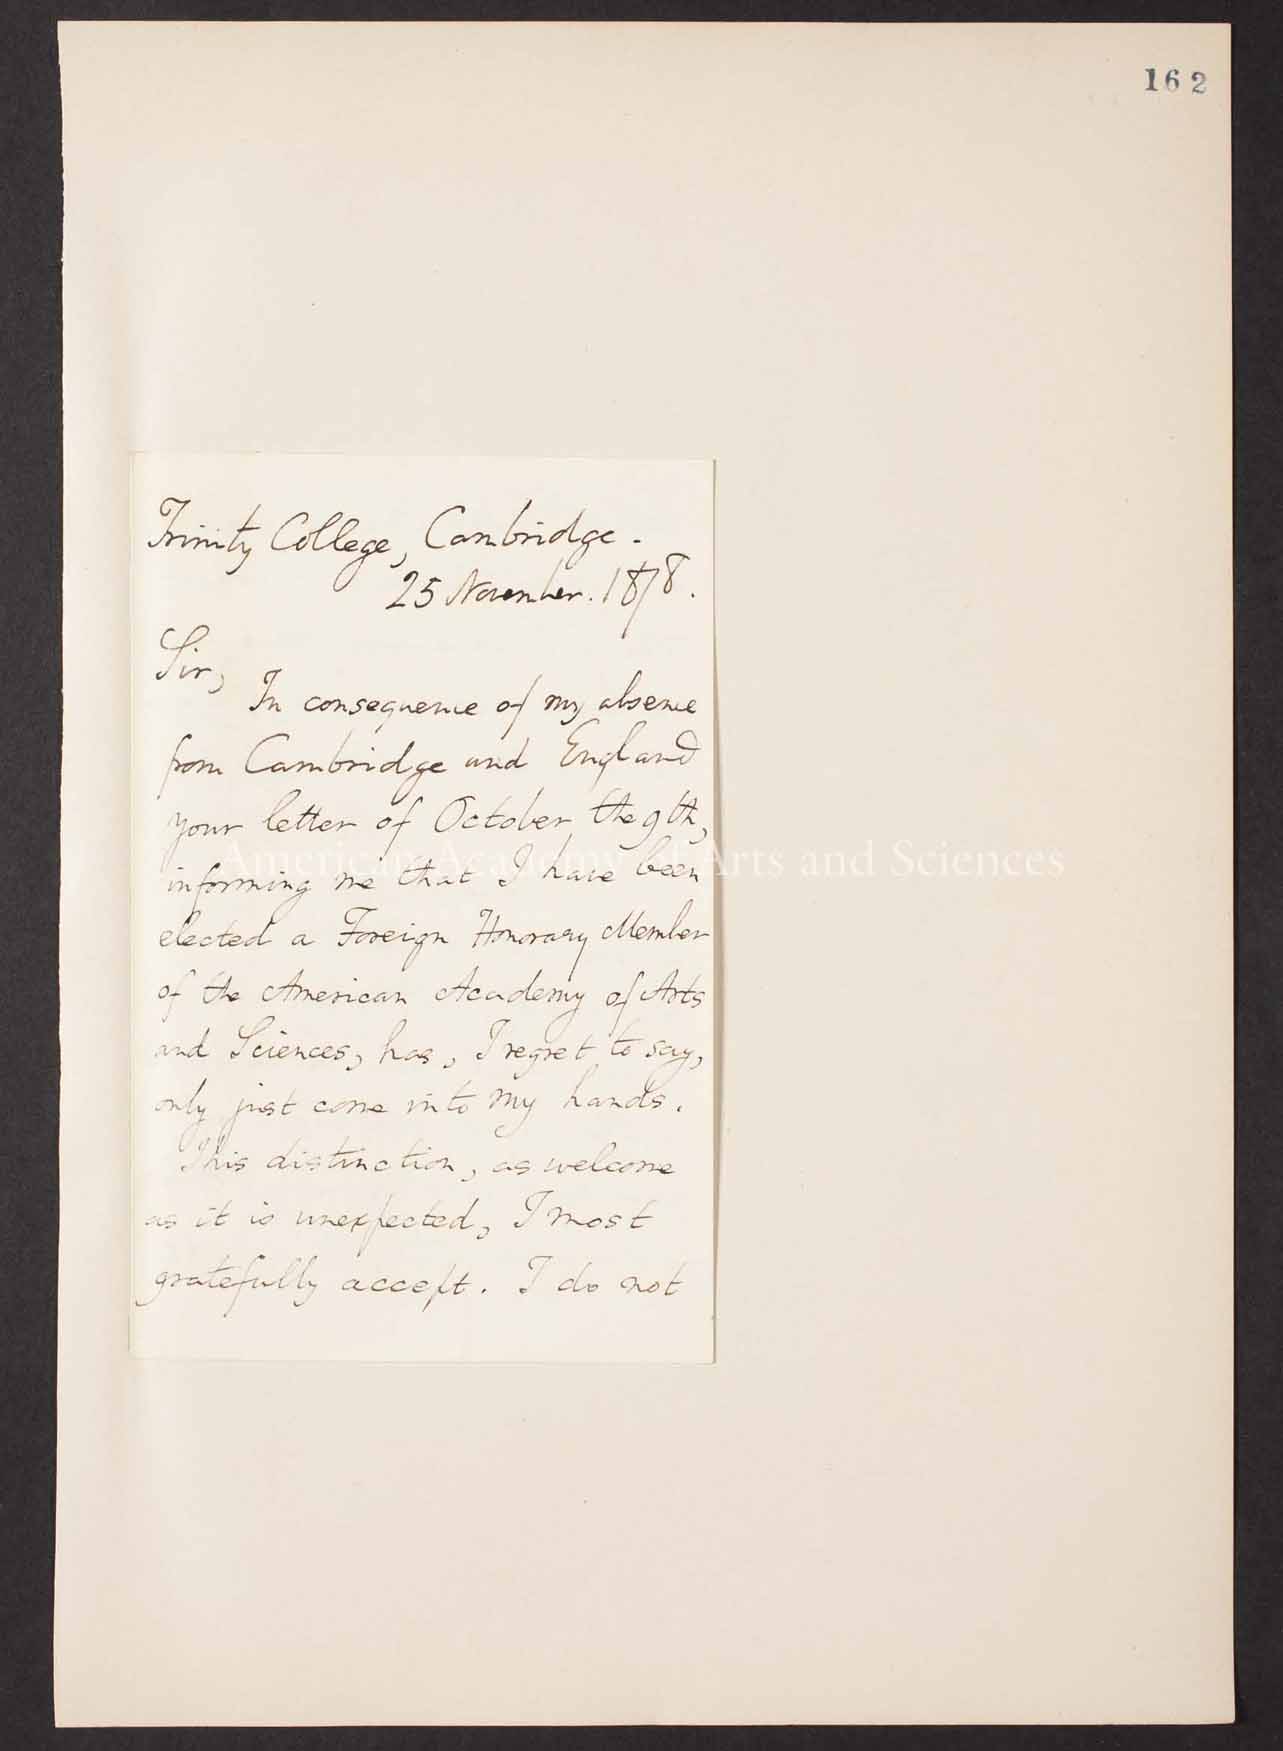 162
Trinity College, Cambridge.
25 November. 1878.
Sir,
In consequence of my absence
from Cambridge and England
your letter of October the 9th,
American Academy of Arts and Sciences
informing me that I have been
elected a Foreign Honorary Member
of the American Academy of Arts
and Sciences, has, I regret to say,
only just come into my hands.
This distinction, as welcome
as it is unexpected, I most
gratefully accept. I do not